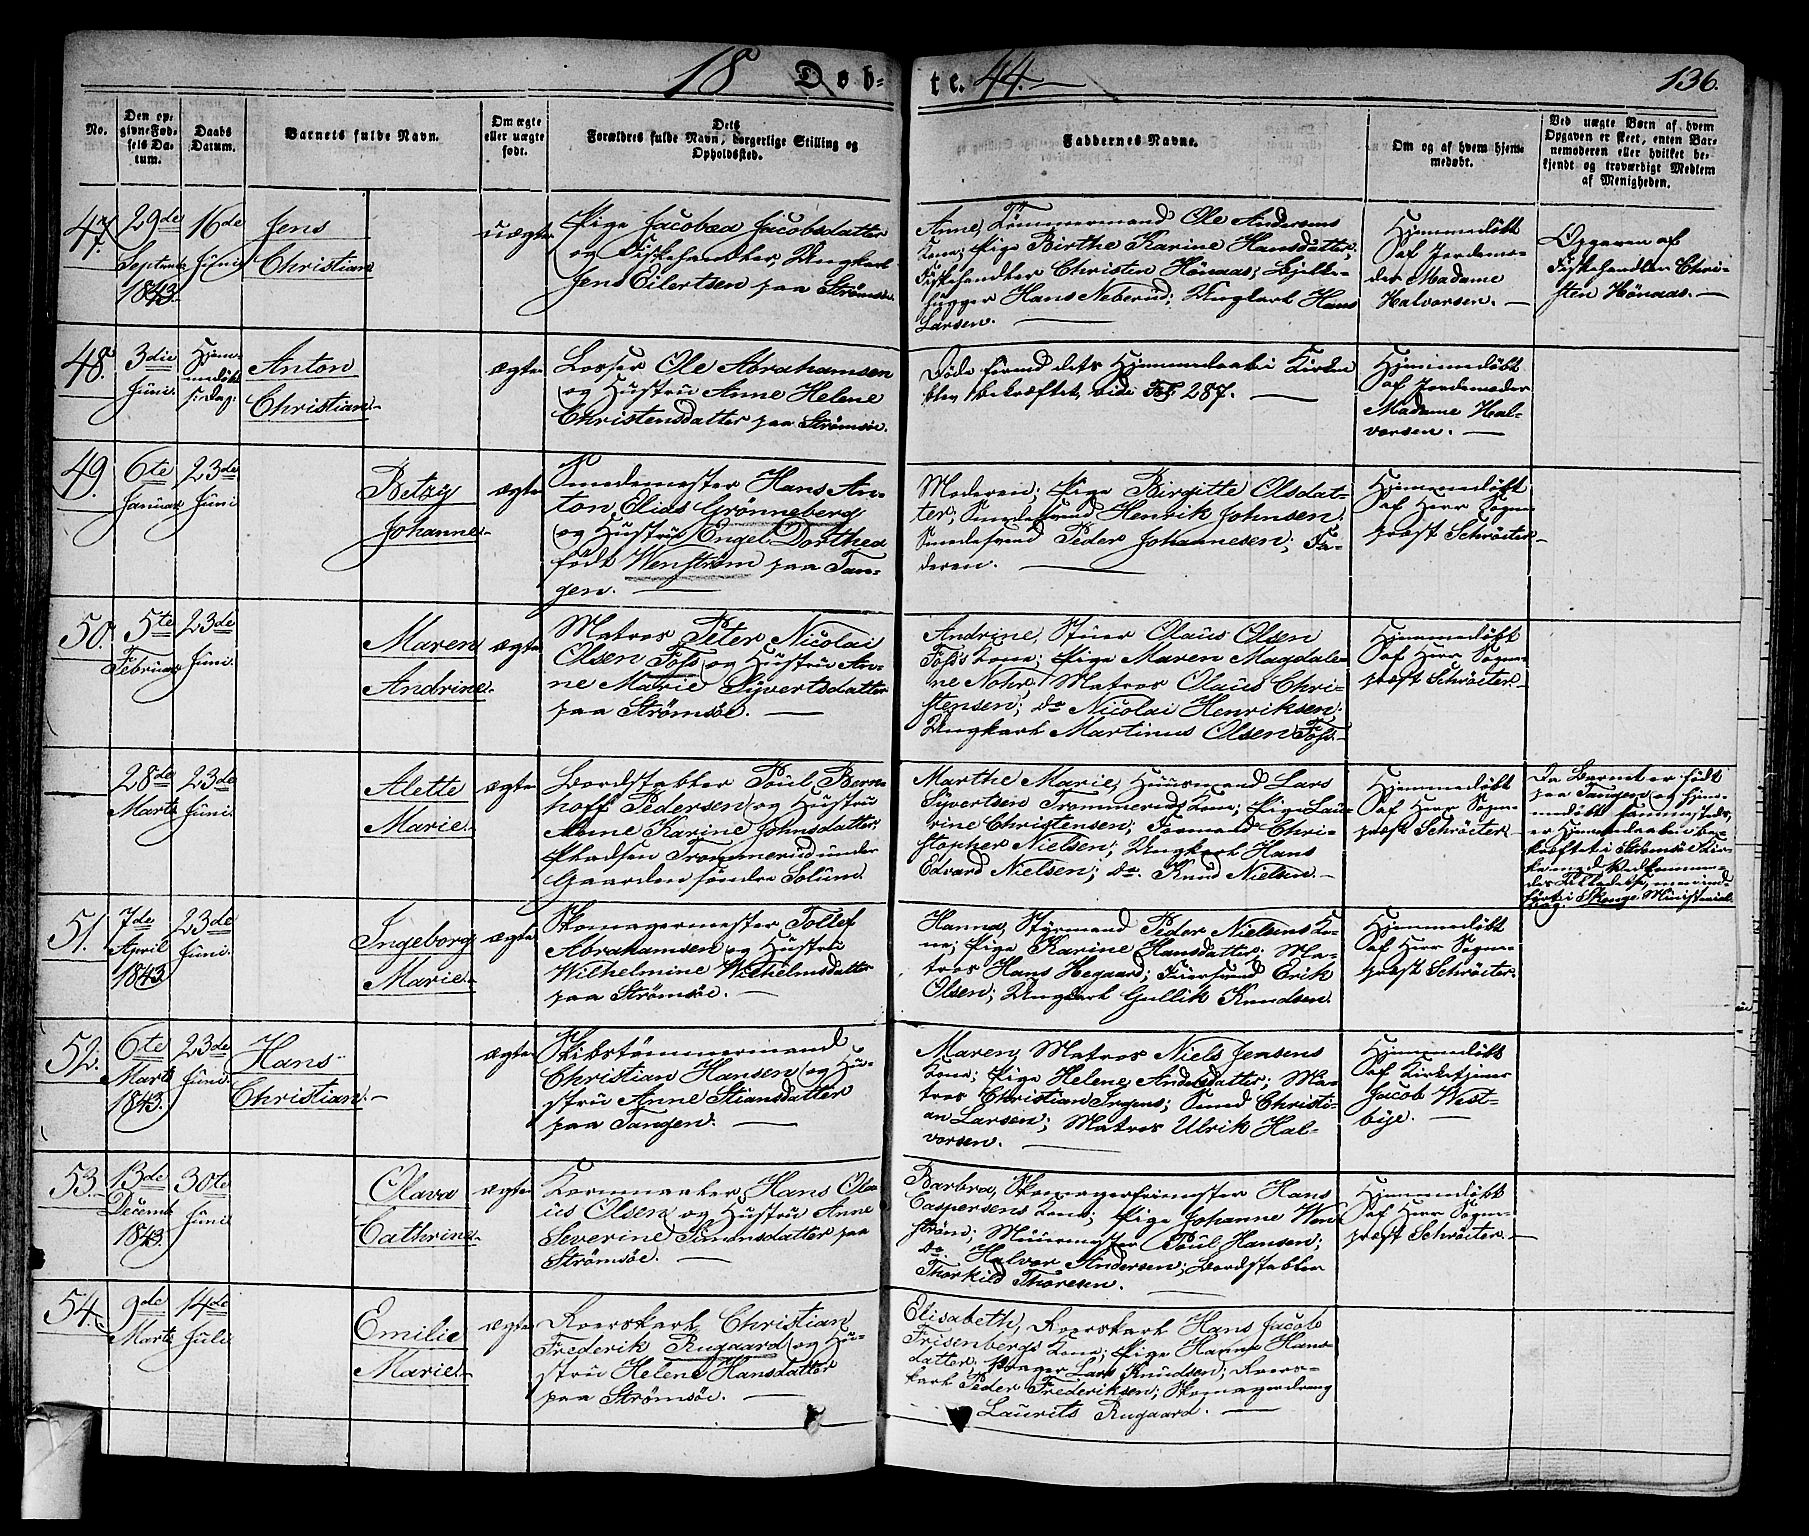 18 Døb-
te. 44.
136.
No.
Den op-
givne Fød-
sels Da-
tum.
Daabs
Datum.
Barnets fulde Navn.
Om ægte
eller uægte
født.
Dets
Forældres fulde Navn, borgerlige Stilling og
Opholdsted.
Faddernes Navne.
Om og af hvem hjem-
medøbt.
Ved uægte Børn af hvem
Opgaven er skeet, enten Bar-
nemoderen eller hvilket be-
kjendt og troværdigt Medlem
af Menigheden.
47.
29de
Septmb
1843.
16de
Juni
Jens
Christian
uægte
Pige Jacobæa Jacobsdatter
og Fiskehandler, Ungkarl
Jens Eilertsen paa Strømsø.
Anne, Tømmermand Ole Andersens
Kone; Pige Birthe Karine Hansdatter;
Fiskehandler Christen Hönaas; Bjelke-
hugger Hans Neberud; Ungkarl Hans
Larsen.
Hjemmedøbt
af Jordemo-
der Madame
Halvorsen.
Opgaven af
Fiskehandler Chri-
sten Hönaas.
48.
3die
Juni.
Hjem-
medøbt
s. Dag.
Anton
Christian.
ægte
Losser Ole Abrahamsen
og Hustru Anne Helene
Christensdatter paa Strømsøe.
Døde førend dets Hjemmedaab i Kirken
blev bekræftet, vide Fol 287.
Hjemmedøbt
af Jordemoder
Madame Hal-
vorsen.
49.
6te
Januar
23de
Juni
Betzy
Johanne.
ægte
Smedemester Hans An-
ton Elias Grønneberg
og Hustru Engel Dorthea
født Wenström paa Tan-
gen.
Moderen; Pige Birgitte Olsdat-
ter; Smedesvend Henrik Johnsen
Smedesvend Peder Johannesen, Fa-
deren.
Hjemmedøbt
af Herr Sogne-
præst Schröiter
50.
5te
Februar
23de
Juni.
Maren
Andrine.
ægte
Matros Peter Nicolai
Olsen Foss og Hustru An-
ne Marie Syvertsdatter
paa Strømsøe.
Andrine, Stuer Olaus Olsen
Foss's Kone; Pige Maren Magdale-
ne Nohr, Matros Olaus Chri-
stensen; do Nicolai Henriksen,
Ungkarl Martinus Olsen Foss.
Hjemmedøbt
af Herr Sogne-
præst Schröiter.
28de
Marts
23de
Juni.
Alette
Marie.
ægte
Bordstabler Poul Bern-
hoff Pedersen og Hustru
Anne Karine Johnsdatter,
Pladsen Trommerud under
Gaarden søndre Solum.
Marthe Marie, Huusmand Lars
Syvertsen Trommeruds Kone; Pige Lau-
rine Christensen; Formand Chri-
stopher Nielsen; Ungkarl Hans
Edvard Nielsen; do Knud Nielsen.
Hjemmedøbt
af Herr Sogne-
præst Schröiter.
Da Barnet er født
paa Tangen og hjem-
medøbt sammesteds,
er Hjemmedaaben be-
kræftet i Strømsø Kir-
ke med Vedkommen-
des Tilladelse, men ind-
ført i Skouge Ministerial-
bog.
51.
7de
April
1843.
23de
Juni.
Ingeborg
Marie.
ægte
Skomagermester Tollef
Abrahamsen og Hustru
Wilhelmine Wilhelmsdatter
paa Strømsøe.
Hanna, Styrmand Peder Nielsens Ko-
ne; Pige Karine Hansdatter; Ma-
tros Hans Hegaard; Erik
Olsen; Ungkarl Gullik Knudsen.
Hjemmedøbt
af Herr Sogne-
præst Schröiter.
52.
6te
Marts
1843.
23de
Juni.
Hans
Christian.
ægte
Skibstømmermand
Christian Hansen og Hu-
stru Anne Stiansdatter
paa Tangen.
Maren, Matros Niels Jensens
Kone; Pige Helene Andersdatter; Ma-
tros Christian Ingens; Svend Christi-
an Larsen; Matros Ulrik Hal-
vorsen.
Hjemmedøbt
af Kirketjener
Jacob West-
bye.
53.
13de
Decemb
1843.
30te
Juni
Olava
Cathrine.
ægte
Kornmaaler Hans Ola-
us Olsen og Hustru Anne
Severine Simensdatter paa
Strømsøe.
Barbra, Skomagerfrimester Hans
Caspersens Kone; Pige Johanne Wen-
ström; Muurmester Poul Hansen;
do Halvor Andersen; Bordstabler
Thorkild Thoresen.
Hjemmedøbt
af Herr Sogne-
præst Schröiter.
54.
9de
Marts
14de
Juli
Emilie
Marie.
ægte
Roerskarl Christian
Frederik Rugaard og Hu-
stru Helene Hansdatter
paa Strømsøe.
Elisabeth, Roerskarl Hans Jacob
Frisenbergs Kone; Pige Hanne Hans-
datter; Prager Lars Knudsen; Roers-
karl Peder Frederiksen; Skomagerdreng
Laurits Rugaard.